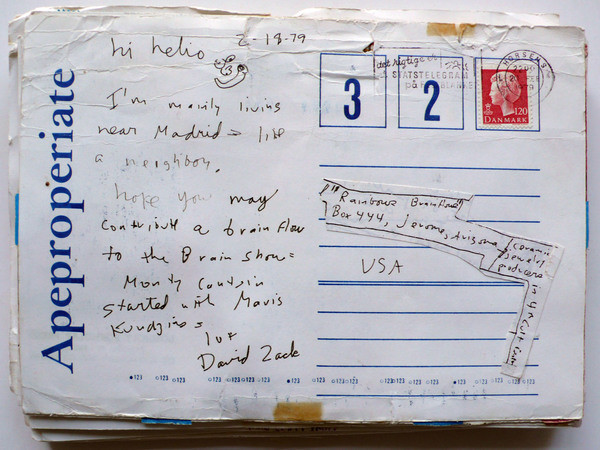 Apeproperiate
hi helio 2-18-79
I'm mainly living
near Madrid = like
a neighbor,
hope you may
contribute a brain flow
to the Brain show =
Monty Cantsin
started with Maris
Kundzins =
luv
David Zack
det rigtige
STATSTELEGRAM
på
HORSENS
1979
3 2
120
DANMARK
"Rainbows Brainflow"
Box 444, Jerome, Arizona
ceramic
jewelry
producers
in
USA
•123 o123 o123 o123 •123 o123 o123 o123 •123 o123